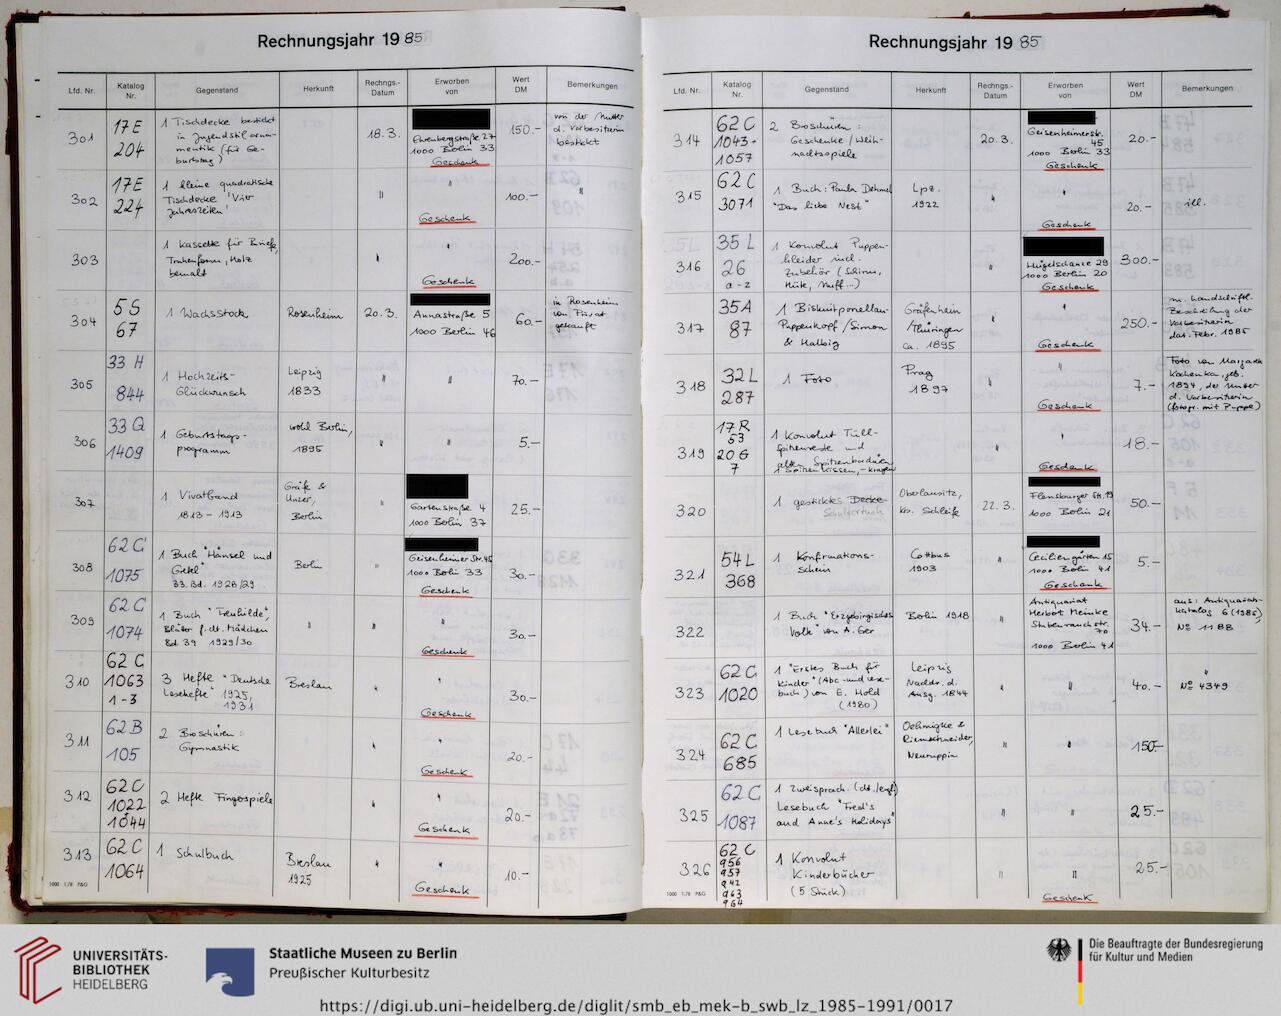 Rechnungsjahr 1985
Lfd. Nr. Katalog Nr. Gegenstand Herkunft Rechngs.-Datum Erworben von Wert DM Bemerkungen
301 17 E 204 1 Tischdecke bestickt 18.3. 150.- von der Mutter
in Jugendstilorna- Ehrenbergstraße 27 d. Vorbesitzerin
mentik (für Ge- 1000 Berlin 33 bestickt
burtstag) Geschenk
302 17 E 224 1 kleine quadratische " " 100.- "
Tischdecke "Vier
Jahreszeiten" Geschenk
303 1 Kassette für Briefe, " 200.-
Truhenform, Holz
bemalt Geschenk
304 5 S 67 1 Wachsstock Rosenheim 20.3. Annastraße 5 60.- in Rosenheim
1000 Berlin 46 von Privat
gekauft
305 33 H 844 1 Hochzeits- Leipzig " " 70.-
Glückwunsch 1833
306 33 Q 1409 1 Geburtstags- wohl Berlin, " " 5.-
programm 1895
307 1 Vivatband Gräfe & " Gartenstraße 4 25.-
1813 - 1913 Unzer, 1000 Berlin 37
Berlin
308 62 C 1075 1 Buch "Hänsel und Berlin " Geisenheimer Str. 45 30.-
Gretel" 1000 Berlin 33
33. Bd. 1928/29 Geschenk
309 62 C 1074 1 Buch " " " " 30.-
Blätter f. dt. Mädchen
Bd 39 1929/30 Geschenk
310 62 C 1063 1-3 3 Hefte "Deutsche Breslau " " 30.-
Lesehefte" 1925,
1931 Geschenk
311 62 B 105 2 Broschüren: " " 20.-
Gymnastik Geschenk
312 62 C 1022 1044 2 Hefte Fingerspiele " " 20.-
Geschenk
313 62 C 1064 1 Schulbuch Breslau " " 10.-
1925 Geschenk
1000 1.78 P&G
Rechnungsjahr 1985
Lfd. Nr. Katalog Nr. Gegenstand Herkunft Rechngs.-Datum Erworben von Wert DM Bemerkungen
314 62 C 1043+ 1057 2 Broschüren: 20.3. Geisenheimerstr. 45 20.-
Geschenke/Weih- 1000 Berlin 33
nachtsspiele Geschenk
315 62 C 3071 1 Buch: Paula Dehmel Lpz. " " 20.- ill.
"Das liebe Nest" 1922 Geschenk
316 35 L 26 a-z 1 Konvolut Puppen- " Hügelschanze 29 300.-
kleider incl. 1000 Berlin 20
Zubehör (Schirm,
Hüte, Muff...) Geschenk
317 35 A 87 1 Biskuitporzellan- Gräfenhain " " 250.- m. handschriftl.
Puppenkopf/Simon /Thüringen Beschreibung der
& Halbig ca. 1895 Geschenk Vorbesitzerin
dat. Febr. 1985
318 32 L 287 1 Foto Prag " " 7.- Foto von Margarete
1897 geb.
1894, der Mutter
d. Vorbesitzerin
Geschenk (fotogr. mit Puppe)
319 17 R 53 20 G 7 1 Konvolut Tüll- " " 18.-
spitzenreste und
alten Spitzenbordüren
1 Spitzenkissen, -kragen Geschenk
320 1 gesticktes Decke Oberlausitz, 22.3. Flensburger Str. 19 50.-
Schultertuch Kr. Schleife 1000 Berlin 21
321 54 L 368 1 Konfirmations- Cottbus " Ceciliengärten 15 5.-
schein 1903 1000 Berlin 41
Geschenk
322 1 Buch "Erzgebirgisches Berlin 1918 Antiquariat 34.- aus: Antiquariats-
Volk" von A. Ger Herbert Meinke katalog 6 (1985),
Stubenrauchstr. 70 No 1188
1000 Berlin 41
323 62 C 1020 1 "Erstes Buch für Leipzig " " 40.- "
Kinder" (Abc- und Lese- Nachdr. d. No 4349
buch) von E. Hold Ausg. 1844
(1980)
324 62 C 685 1 Lesebuch "Allerlei" Oehmigke & " " 150.-
Riemschneider,
Neuruppin
325 62 C 1087 1 zweisprach. (dt./engl) " " 25.-
Lesebuch "Fred's
and Anne's Holidays"
326 62 C 956 957 942 963 964 1 Konvolut " " 25.-
Kinderbücher
(5 Stück) Geschenk
1000 1.78 P&G
UNIVERSITÄTS-
BIBLIOTHEK
HEIDELBERG
Staatliche Museen zu Berlin
Preußischer Kulturbesitz
Die Beauftragte der Bundesregierung
für Kultur und Medien
https://digi.ub.uni-heidelberg.de/diglit/smb_eb_mek-b_swb_lz_1985-1991/0017